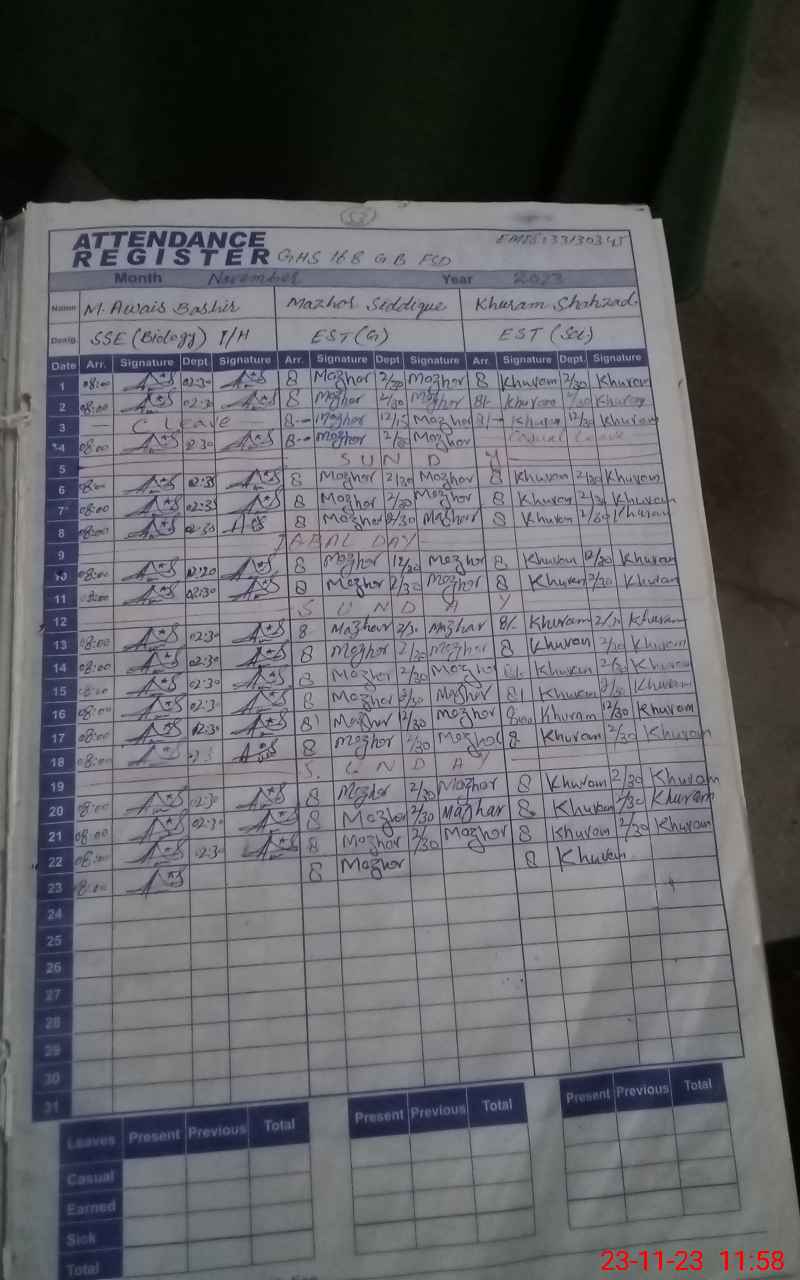 52
ATTENDANCE
REGISTER GHS 16 8 G B FSD EMIS: 33130345
Month November Year 2023
Name M. Awais Bashir Mazhor Siddique Khuram Shahzad.
Desig. SSE (Biology) I/H EST (G) EST (Sci)
Date Arr. Signature Dept. Signature Arr. Signature Dept Signature Arr. Signature Dept. Signature
1 08:00 02:30 8 Mazhor 2/30 Mazhor 8 Khuram 2/30 Khuram
2 08:00 02:30 8 Mazhor 2/30 Mazhor 8/- Khuram 2/30 Khuram
3 C Leave 8-- Mazhor 12/15 Mazhor 8/- Khuram 12/30 Khuram
4 08:00 2:30 8-- Mazhor 2/30 Mazhor Casual Leave
5 S U N D Y
6 8:00 02:35 8 Mazhor 2/30 Mazhor 8 Khuram 2/30 Khuram
7 08:00 02:35 8 Mazhor 2/30 Mazhor 8 Khuram 2/30 Khuram
8 08:00 02:30 8 Mazhor 2/30 Mazhor 8 Khuram 2/30 Khuram
9 IQBAL DAY
10 08:00 12:20 8 Mazhor 12/30 Mazhor 8 Khuram 12/30 Khuram
11 08:00 02:30 8 Mazhor 2/30 Mazhor 8 Khuram 2/30 Khuram
12 S U N D A Y
13 08:00 02:30 8 Mazhar 2/30 Mazhar 8/. Khuram 2/30 Khuram
14 08:00 02:30 8 Mazhor 2/30 Mazhor 8 Khuram 2/30 Khuram
15 08:00 02:30 8 Mazhor 2/30 Mazhor 8/. Khuram 2/30 Khuram
16 08:00 02:30 8 Mazhor 2/30 Mazhor 8/ Khuram 2/30 Khuram
17 08:00 12:30 8' Mazhor 12/30 Mazhor 8/00 Khuram 12/30 Khuram
18 08:00 8 Mazhor 2/30 Mazhor 8 Khuram 2/30 Khuram
19 S. U N D A Y
20 08:00 02:30 8 Mazhor 2/30 Mazhor 8 Khuram 2/30 Khuram
21 08:00 02:30 8 Mazhor 2/30 Mazhar 8 Khuram 2/30 Khuram
22 08:00 02:30 8 Mazhor 2/30 Mazhor 8 Khuram 2/30 Khuram
23 08:00 8 Mazhor 8 Khuram
24
25
26
27
28
29
30
31
Leaves Present Previous Total Present Previous Total Present Previous Total
Casual
Earned
Sick
Total
23-11-23 11:58